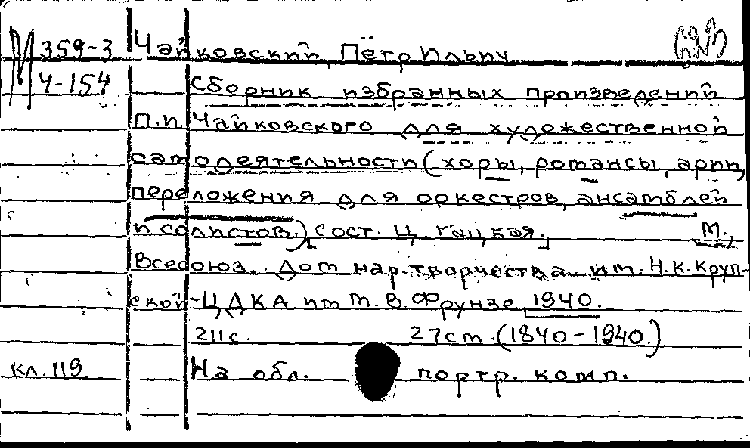 М 359-3 Чайковский, Пётр Ильич
Ч-154 Сборник избранных произведений
П.И. Чайковского для художественной
самодеятельности (хоры, романсы, арии,
переложения для оркестров, ансамблей
и солистов.) Сост. Ц. Гацкая. М.,
Всесоюз. Дом нар. творчества им. Н.К. Круп-
ской - ЦДКА им М.В. Фрунзе 1940.
211с. 27см. (1840-1940.)
кл. 119 На обл. портр. комп.